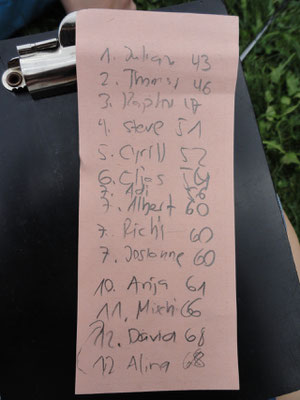 1. Julian 43
2. Thomas 46
3. 47
4. Steve 51
5. Cyrill 52
6. Elias
7. Adi 56
7. Albert 60
7. Richi 60
7. 60
10. Anja 61
11. Michi 66
12. David 68
12 Alina 68